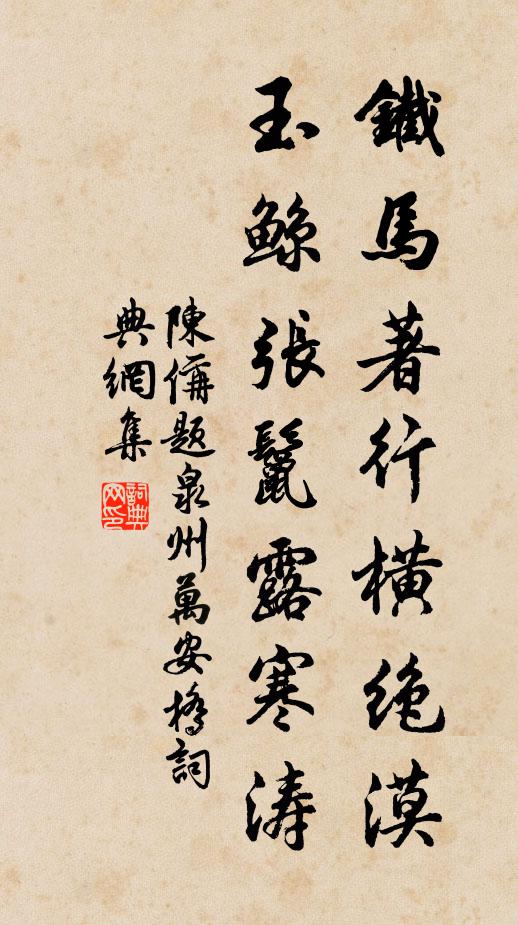 鐵馬著行橫絶漠
玉鯨張鬣露寒濤
陳偁題泉州萬安橋詞
典網集
詞典網印